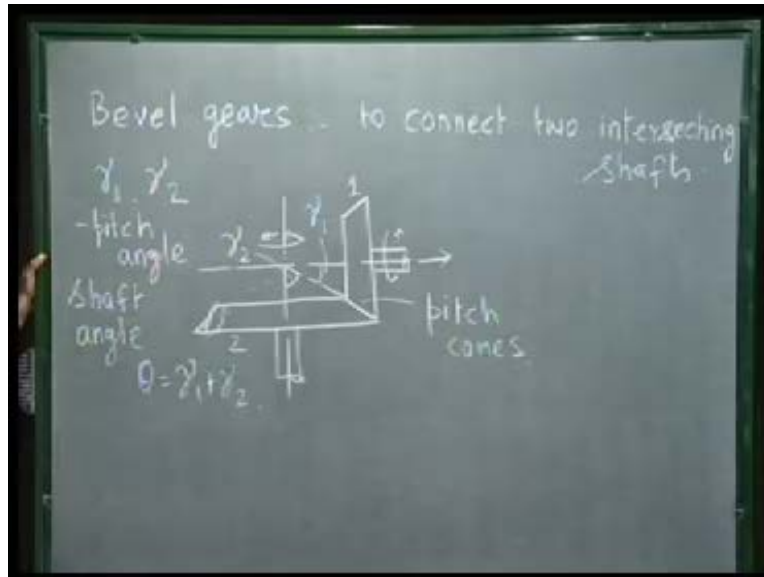 Bevel gears .. to connect two intersecting
shafts.
γ₁, γ₂
- pitch
angle
shaft
angle
θ = γ₁ + γ₂.
1
γ₁
γ₂
2
pitch
cones.